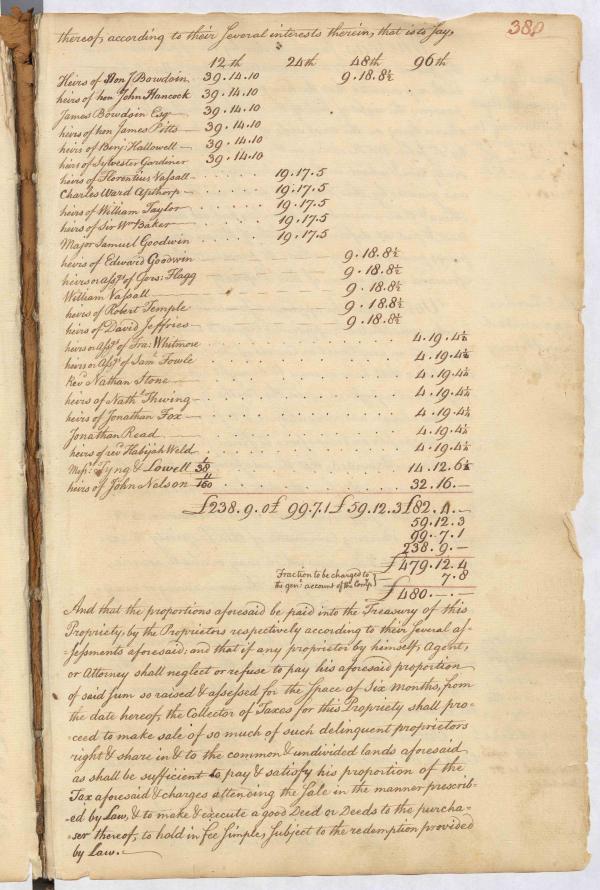 380
thereof, according to their several interests therein, that is to say,
12th 24th 48th 96th
Heirs of Hon J Bowdoin 39.14.10 9.18.8½
heirs of hon John Hancock 39.14.10
James Bowdoin Esq 39.14.10
heirs of hon James Pitts 39.14.10
heirs of Benj: Hallowell 39.14.10
heirs of Sylvester Gardiner 39.14.10
heirs of Florentius Vassall 19.17.5
Charles Ward Apthorp 19.17.5
heirs of William Taylor 19.17.5
heirs of Sir Wm Baker 19.17.5
Major Samuel Goodwin 19.17.5
heirs of Edward Goodwin 9.18.8½
heirs or assns of Gers: Flagg 9.18.8½
William Vassall 9.18.8½
heirs of Robert Temple 9.18.8½
heirs of David Jeffries 9.18.8½
heirs or assns of Fra: Whitmore 4.19.4¼
heirs or assns of Saml Fowle 4.19.4¼
Revd Nathan Stone 4.19.4¼
heirs of Nathl Thwing 4.19.4¼
heirs of Jonathan Fox 4.19.4¼
Jonathan Read 4.19.4¼
heirs of revd Habijah Weld 4.19.4¼
Messrs Tyng & Lowell 14.12.6¼
heirs of John Nelson 32.16.—
£238.9.0 £99.7.1 £59.12.3 £82.4.—
59.12.3
99.7.1
238.9.—
£479.12.4
Fraction to be charged to
the genl account of the Compy } 7.8
£480.—.—
And that the proportions aforesaid be paid into the Treasury of this
Propriety, by the Proprietors respectively according to their several as-
-sessments aforesaid; and that if any proprietor by himself, Agent,
or Attorney shall neglect or refuse to pay his aforesaid proportion
of said sum so raised & assessed for the space of Six Months, from
the date hereof, the Collector of Taxes for this Propriety shall pro-
-ceed to make sale of so much of such delinquent proprietors
right & share in & to the common & undivided lands aforesaid
as shall be sufficient to pay & satisfy his proportion of the
Tax aforesaid & charges attending the sale in the manner prescrib-
-ed by Law, & to make & execute a good Deed or Deeds to the purcha-
-ser thereof, to hold in fee simple, subject to the redemption provided
by Law.